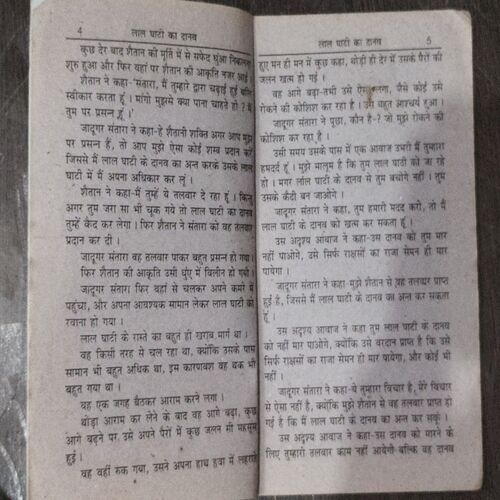 4 लाल घाटी का दानव
कुछ देर बाद शैतान की मूर्ति में से सफेद धुंआ निकलना
शुरु हुआ और फिर वहां पर शैतान की आकृति नजर आई।
शैतान ने कहा-'संतारा, मैं तुम्हारे द्वारा चढ़ाई हुई बलि
स्वीकार करता हूं। मांगो मुझसे क्या पाना चाहते हो? मैं
तुम पर प्रसन्न हूं।'
जादूगर संतारा ने कहा-हे शैतानी शक्ति अगर आप मुझ
पर प्रसन्न हैं, तो आप मुझे ऐसा कोई शस्त्र प्रदान करें
जिससे मैं लाल घाटी के दानव का अन्त करके उसके लाल
घाटी में मैं अपना अधिकार कर लूं।
शैतान ने कहा-मैं तुम्हें ये तलवार दे रहा हूं। किन्तु
अगर तुम जरा सा भी चूक गये तो लाल घाटी का दानव
तुम्हें कैद कर लेगा। फिर शैतान ने संतारा को वह तलवार
प्रदान कर दी।
जादूगर संतारा वह तलवार पाकर बहुत प्रसन्न हो गया।
फिर शैतान की आकृति उसी धुंए में विलीन हो गयी।
जादूगर संतारा फिर वहां से चलकर अपने कमरे में
पहुंचा, और अपना आवश्यक सामान लेकर लाल घाटी को
रवाना हो गया।
लाल घाटी के रास्ते का बहुत ही खराब मार्ग था।
वह किसी तरह से चल रहा था, क्योंकि उसके पास
सामान भी बहुत अधिक था, इस कारणवश वह थक भी
बहुत गया था।
वह एक जगह बैठकर आराम करने लगा।
थोड़ा आराम कर लेने के बाद वह आगे बढ़ा, कुछ
आगे बढ़ने पर उसे अपने पैरों में कुछ जलन सी महसूस
हुई।
वह वहीं रुक गया, उसने अपना हाथ हवा में लहराते
लाल घाटी का दानव 5
हुए मन ही मन में कुछ कहा, थोड़ी ही देर में उसके पैरों की
जलन खत्म हो गई।
वह आगे बढ़ा-तभी उसे ऐसा लगा, जैसे कोई उसे
रोकने की कोशिश कर रहा है। उसे बहुत आश्चर्य हुआ।
जादूगर संतारा ने पूछा, कौन है-? जो मुझे रोकने की
कोशिश कर रहा है।
उसी समय उसके पास में एक आवाज उभरी मैं तुम्हारा
हमदर्द हूं। मुझे मालूम है कि तुम लाल घाटी को जा रहे
हो। मगर लाल घाटी के दानव से तुम बचोगे नहीं। तुम
उसके कैदी बन जाओगे।
जादूगर संतारा ने कहा, तुम हमारी मदद करो, तो मैं
लाल घाटी के दानव को खत्म कर सकता हूं।
उस अदृश्य आवाज ने कहा-उस दानव को तुम मार
नहीं पाओगे, उसे सिर्फ राक्षसों का राजा सेमन ही मार
पायेगा।
जादूगर संतारा ने कहा-मुझे शैतान से यह तलवार प्राप्त
हुई है, जिससे मैं लाल घाटी के दानव का अन्त कर सकता
हूं।
उस अदृश्य आवाज ने कहा तुम लाल घाटी के दानव
को नहीं मार पाओगे, क्योंकि उसे वरदान प्राप्त है कि उसे
सिर्फ राक्षसों का राजा सेमन ही मार पायेगा, और कोई भी
नहीं।
जादूगर संतारा ने कहा-ये तुम्हारा विचार है, मेरे विचार
से ऐसा नहीं है, क्योंकि मुझे शैतान से वह तलवार प्राप्त हो
गई है कि मैं लाल घाटी के दानव का अन्त कर सकूं।
उस अदृश्य आवाज ने कहा-उस दानव को मारने के
लिए तुम्हारी तलवार काम नहीं आयेगी बल्कि वह दानव